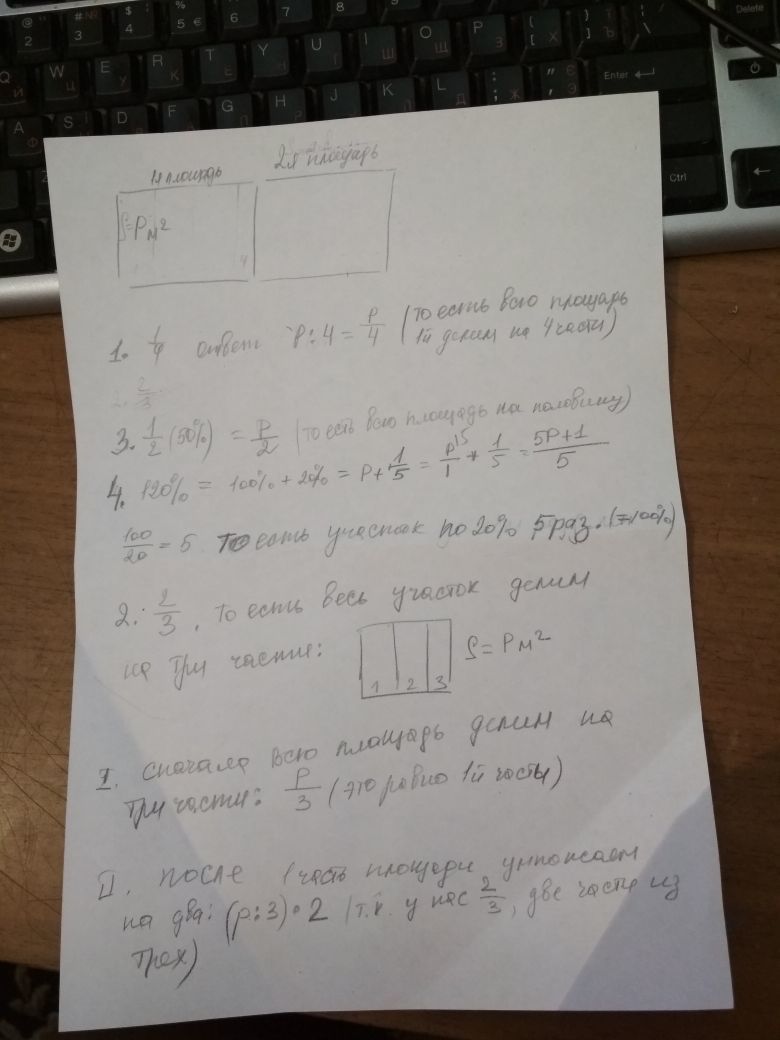 1я площадь 2я площадь
S=Pм²
4
1. 1/4 ответ P:4 = P/4 (то есть всю площадь
1й делим на 4 части)
2. 2/3
3. 1/2 (50%) = P/2 (то есть всю площадь на половину)
4. 120% = 100% + 20% = P + 1/5 = P/1 15 + 1/5 = 5P+1/5
100/20 = 5 То есть участок по 20% 5 раз. (=100%)
2. 2/3, то есть весь участок делим
на три части: 1 2 3 S = Pм²
I. Сначала всю площадь делим на
три части: P/3 (это равно 1й части)
II. После 1 часть площади умножаем
на два: (p:3)•2 (т.к. у нас 2/3, две части из
трех)